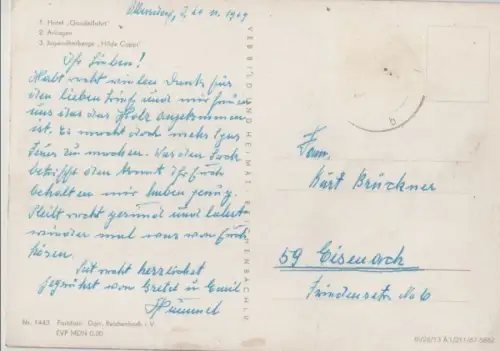 1. Hotel „Gondelfahrt"
2. Anlagen
3. Jugendherberge „Hilde Coppi"
Ihr Lieben!
Habt recht vielen Dank für
den lieben Brief und wir freuen
uns das das Holz angekommen
ist. Es macht doch mehr Spas
Feuer zu machen. Was den Sack
betrifft den könnt ihr
behalten wir haben genug.
Bleibt recht gesund und lasst
wieder mal was von Euch
hören.
Seit recht herzlichst
gegrüsst von Gretel und Emil
Hummel
VEB BILD UND HEIMAT REICHENBACH I. V.
Fam.
Kurt Brückner
59 Eisenach
Friedensstr. No 6
Nr. 1443 Farbfoto: Darr, Reichenbach i. V.
EVP MDN 0,20